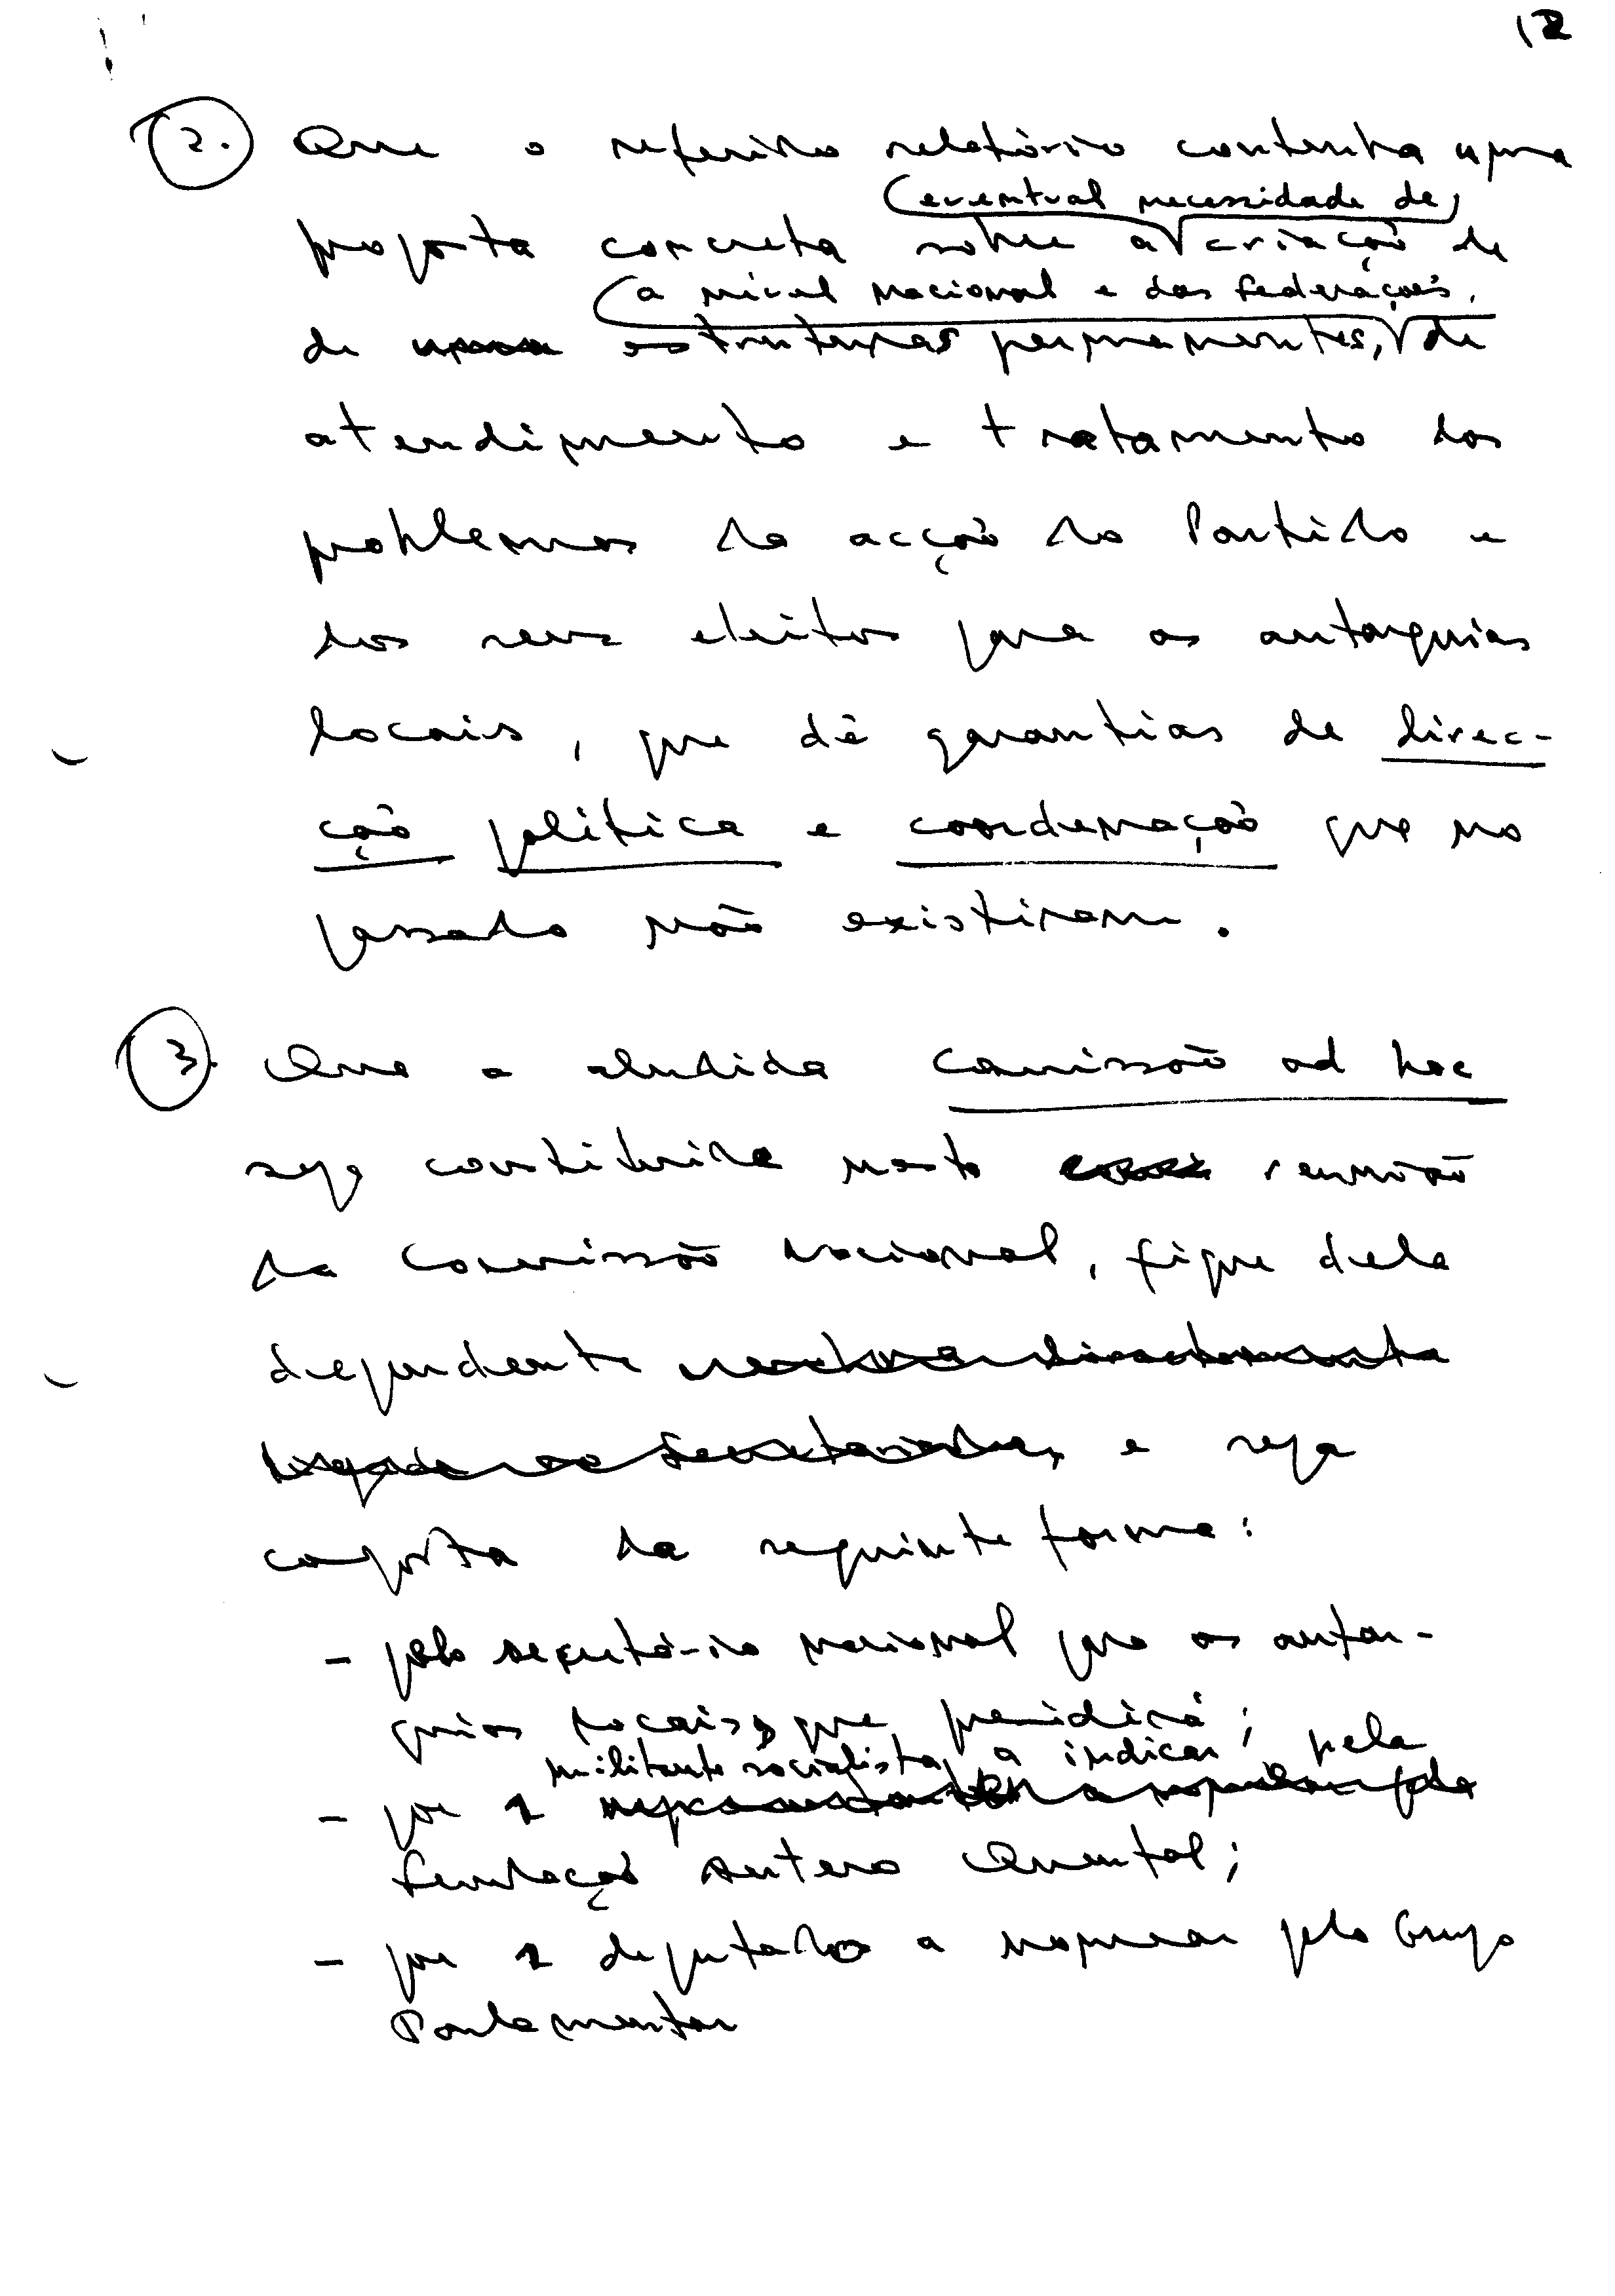 12
2. Que o referido relatório contenha uma
(eventual necessidade de)
proposta concreta sobre a criação de
(a nível nacional e das federações,
de uma estruturas permanentes, de
atendimento e tratamento dos
problemas da acção do Partido e
dos seus eleitos para as autarquias
locais, que dê garantias de direc-
ção política e coordenação que no
passado não existiram.
3. Que a aludida comissão ad hoc
seja constituída nesta reunião
da Comissão Nacional, fique dela
dependente directamente
ligada ao Secretariado, e seja
composta da seguinte forma:
- pelo secretário nacional para as autar-
quias locais, que presidirá;
militante socialista a indicar pela
- por 1 representante a nomear pela
Fundação Antero Quental;
- por 1 deputado a nomear pelo Grupo
Parlamentar